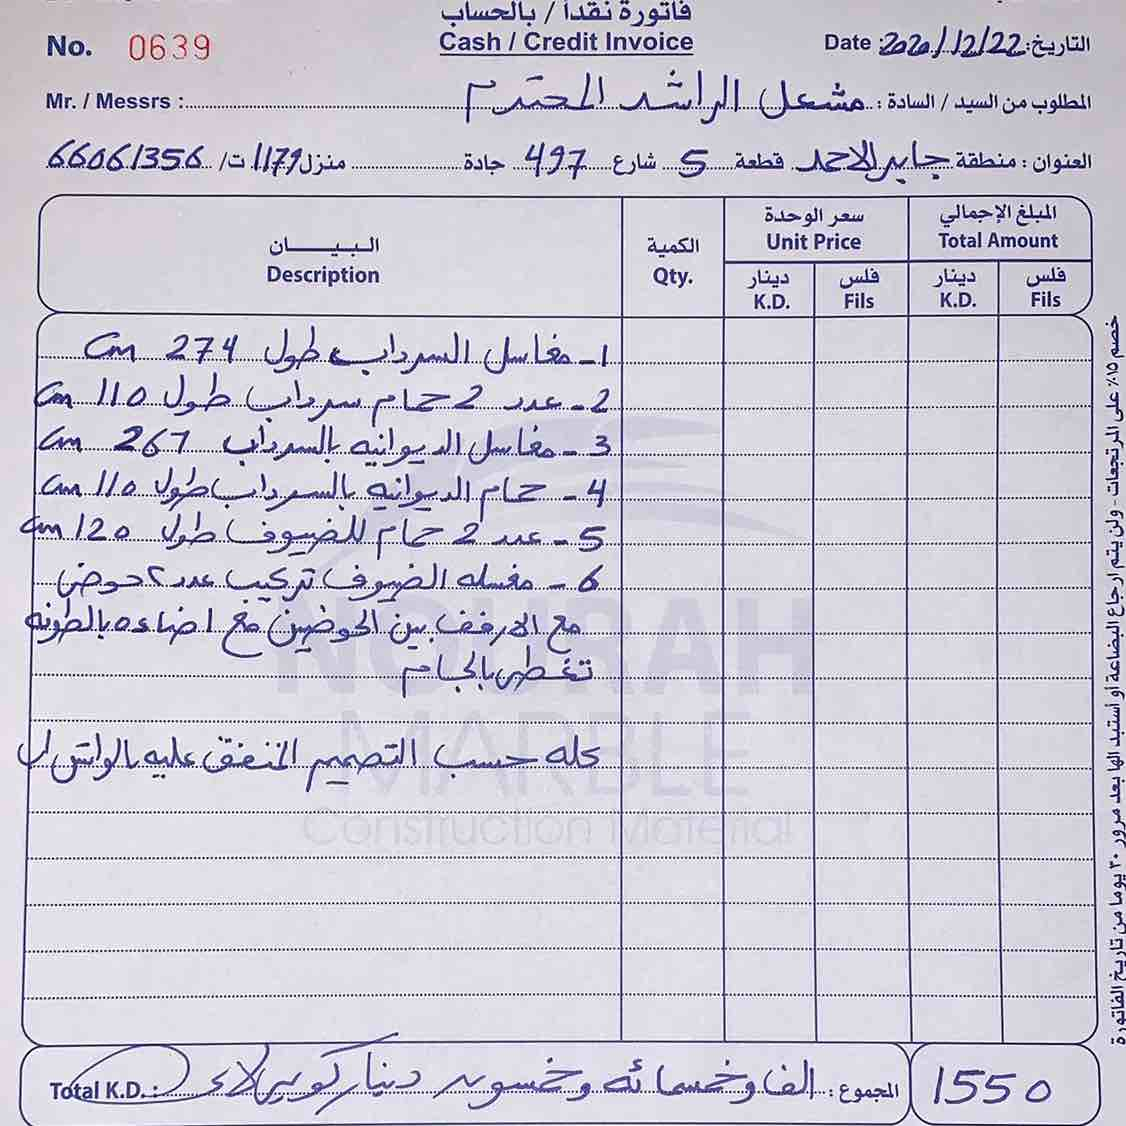 فاتورة نقداً / بالحساب
Cash / Credit Invoice
No. 0639
Date :2020/12/22: التاريخ
Mr. / Messrs : مشعل الراشد المحترم المطلوب من السيد / السادة :
العنوان : منطقة جابر الاحمد قطعة 5 شارع 497 جادة منزل 1179 ت/ 66061356
البيــــــان Description
الكمية Qty.
سعر الوحدة Unit Price
المبلغ الإجمالي Total Amount
دينار K.D.
فلس Fils
دينار K.D.
فلس Fils
1- مغاسل السرداب طول 274 cm
2- عدد 2 حمام سرداب طول 110 cm
3- مغاسل الديوانيه بالسرداب 267 cm
4- حمام الديوانيه بالسرداب طول 110 cm
5- عدد 2 حمام للضيوف طول 120 cm
6- مغسله الضيوف تركيب عدد ٢ حوض
مع الارفف بين الحوضين مع اضاءه بالطونه
تغطى بالجام
كله حسب التصميم المتفق عليه بالواتس اب
NOURAH
MARBLE
Construction Material
خصم ١٥٪ على المرتجعات - ولن يتم ارجاع البضاعة أو أستبدالها بعد مرور ٣٠ يوما من تاريخ الفاتورة
Total K.D. : الف وخمسمائه وخمسون دينار كويتي لاغير المجموع :
1550